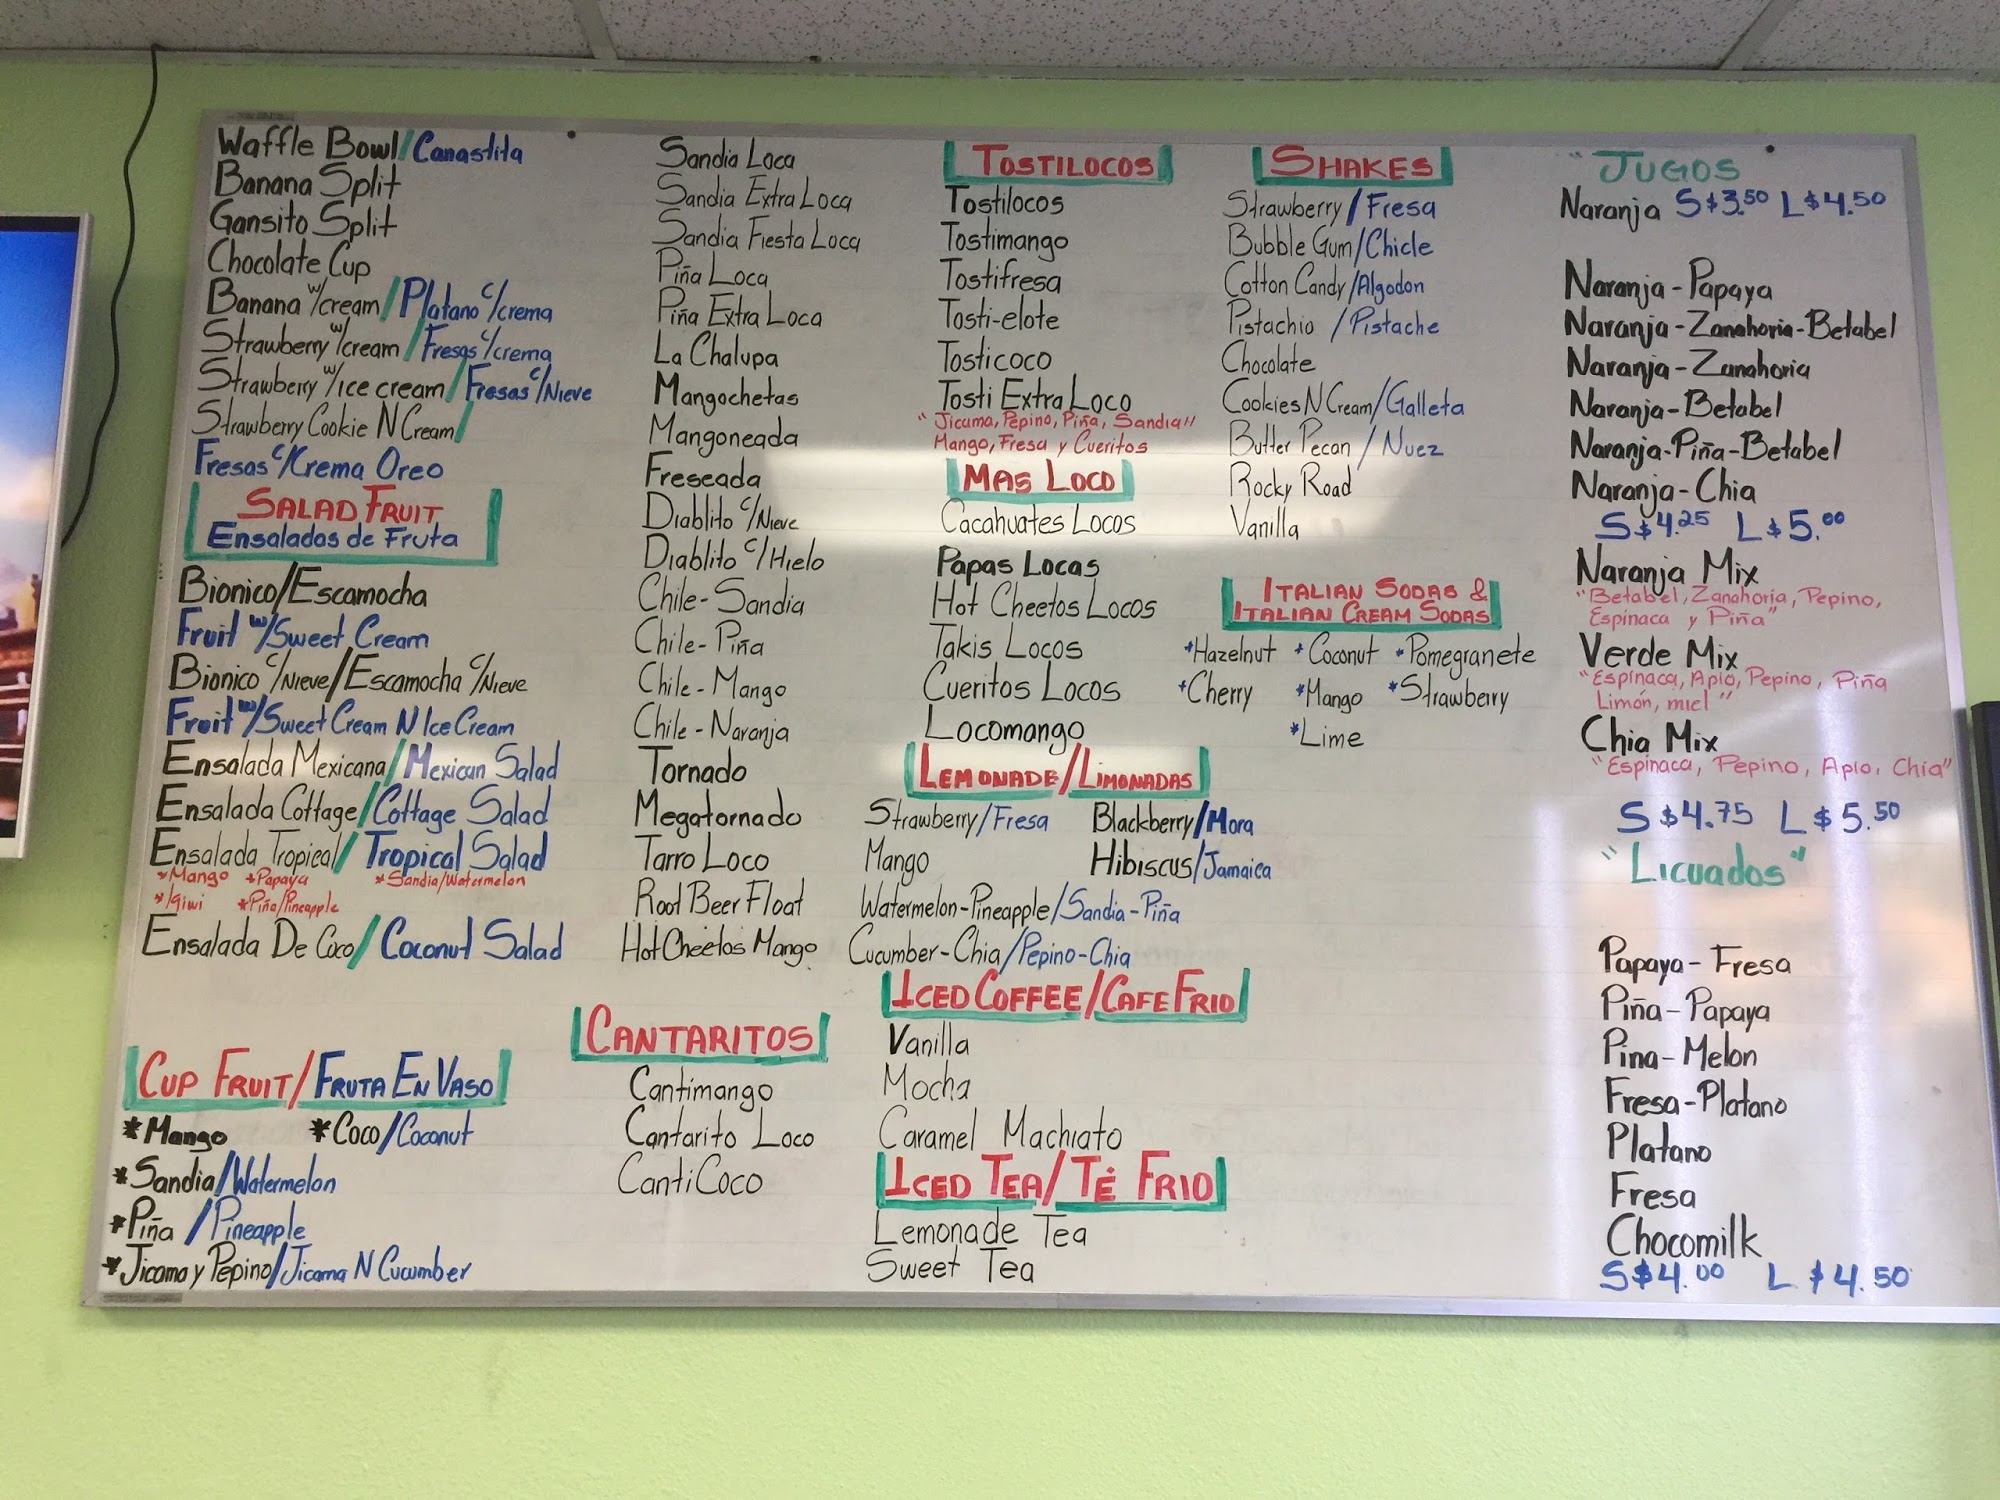 Waffle Bowl/Canastita
Banana Split
Gansito Split
Chocolate Cup
Banana w/cream/Platano c/crema
Strawberry w/cream/Fresas c/crema
Strawberry w/Ice cream/Fresas c/Nieve
Strawberry Cookie N Cream/
Fresas c/Crema Oreo
SALAD FRUIT
Ensaladas de Fruta
Bionico/Escamocha
Fruit w/Sweet Cream
Bionico c/Nieve/Escamocha c/Nieve
Fruit w/Sweet Cream N Ice Cream
Ensalada Mexicana/Mexican Salad
Ensalada Cottage/Cottage Salad
Ensalada Tropical/Tropical Salad
*Mango *Papaya *Sandia/Watermelon
*Kiwi *Piña/Pineapple
Ensalada De Coco/Coconut Salad
CUP FRUIT/FRUTA EN VASO
*Mango *Coco/Coconut
*Sandia/Watermelon
*Piña/Pineapple
*Jicama y Pepino/Jicama N Cucumber
Sandia Loca
Sandia Extra Loca
Sandia Fiesta Loca
Piña Loca
Piña Extra Loca
La Chalupa
Mangochetas
Mangoneada
Freseada
Diablito c/Nieve
Diablito c/Hielo
Chile-Sandia
Chile-Piña
Chile-Mango
Chile-Naranja
Tornado
Megatornado
Tarro Loco
Root Beer Float
Hot Cheetos Mango
CANTARITOS
Cantimango
Cantarito Loco
CantiCoco
TOSTILOCOS
Tostilocos
Tostimango
Tostifresa
Tosti-elote
Tosticoco
Tosti Extra Loco
"Jicama, Pepino, Piña, Sandia"
Mango, Fresa y Cueritos
MAS LOCO
Cacahuates Locos
Papas Locas
Hot Cheetos Locos
Takis Locos
Cueritos Locos
Locomango
LEMONADE/LIMONADAS
Strawberry/Fresa Blackberry/Mora
Mango Hibiscus/Jamaica
Watermelon-Pineapple/Sandia-Piña
Cucumber-Chia/Pepino-Chia
ICED COFFEE/CAFE FRIO
Vanilla
Mocha
Caramel Machiato
ICED TEA/TÉ FRIO
Lemonade Tea
Sweet Tea
SHAKES
Strawberry/Fresa
Bubble Gum/Chicle
Cotton Candy/Algodon
Pistachio /Pistache
Chocolate
Cookies N Cream/Galleta
Butter Pecan / Nuez
Rocky Road
Vanilla
ITALIAN SODAS &
ITALIAN CREAM SODAS
*Hazelnut *Coconut *Pomegranete
*Cherry *Mango *Strawberry
*Lime
"JUGOS
Naranja S $3.50 L $4.50
Naranja-Papaya
Naranja-Zanahoria-Betabel
Naranja-Zanahoria
Naranja-Betabel
Naranja-Piña-Betabel
Naranja-Chia
S $4.25 L $5.00
Naranja Mix
"Betabel, Zanahoria, Pepino,
Espinaca y Piña"
Verde Mix
"Espinaca, Apio, Pepino, Piña
Limón, miel"
Chia Mix
"Espinaca, Pepino, Apio, Chia"
S $4.75 L $5.50
"Licuados"
Papaya-Fresa
Piña-Papaya
Pina-Melon
Fresa-Platano
Platano
Fresa
Chocomilk
S $4.00 L $4.50